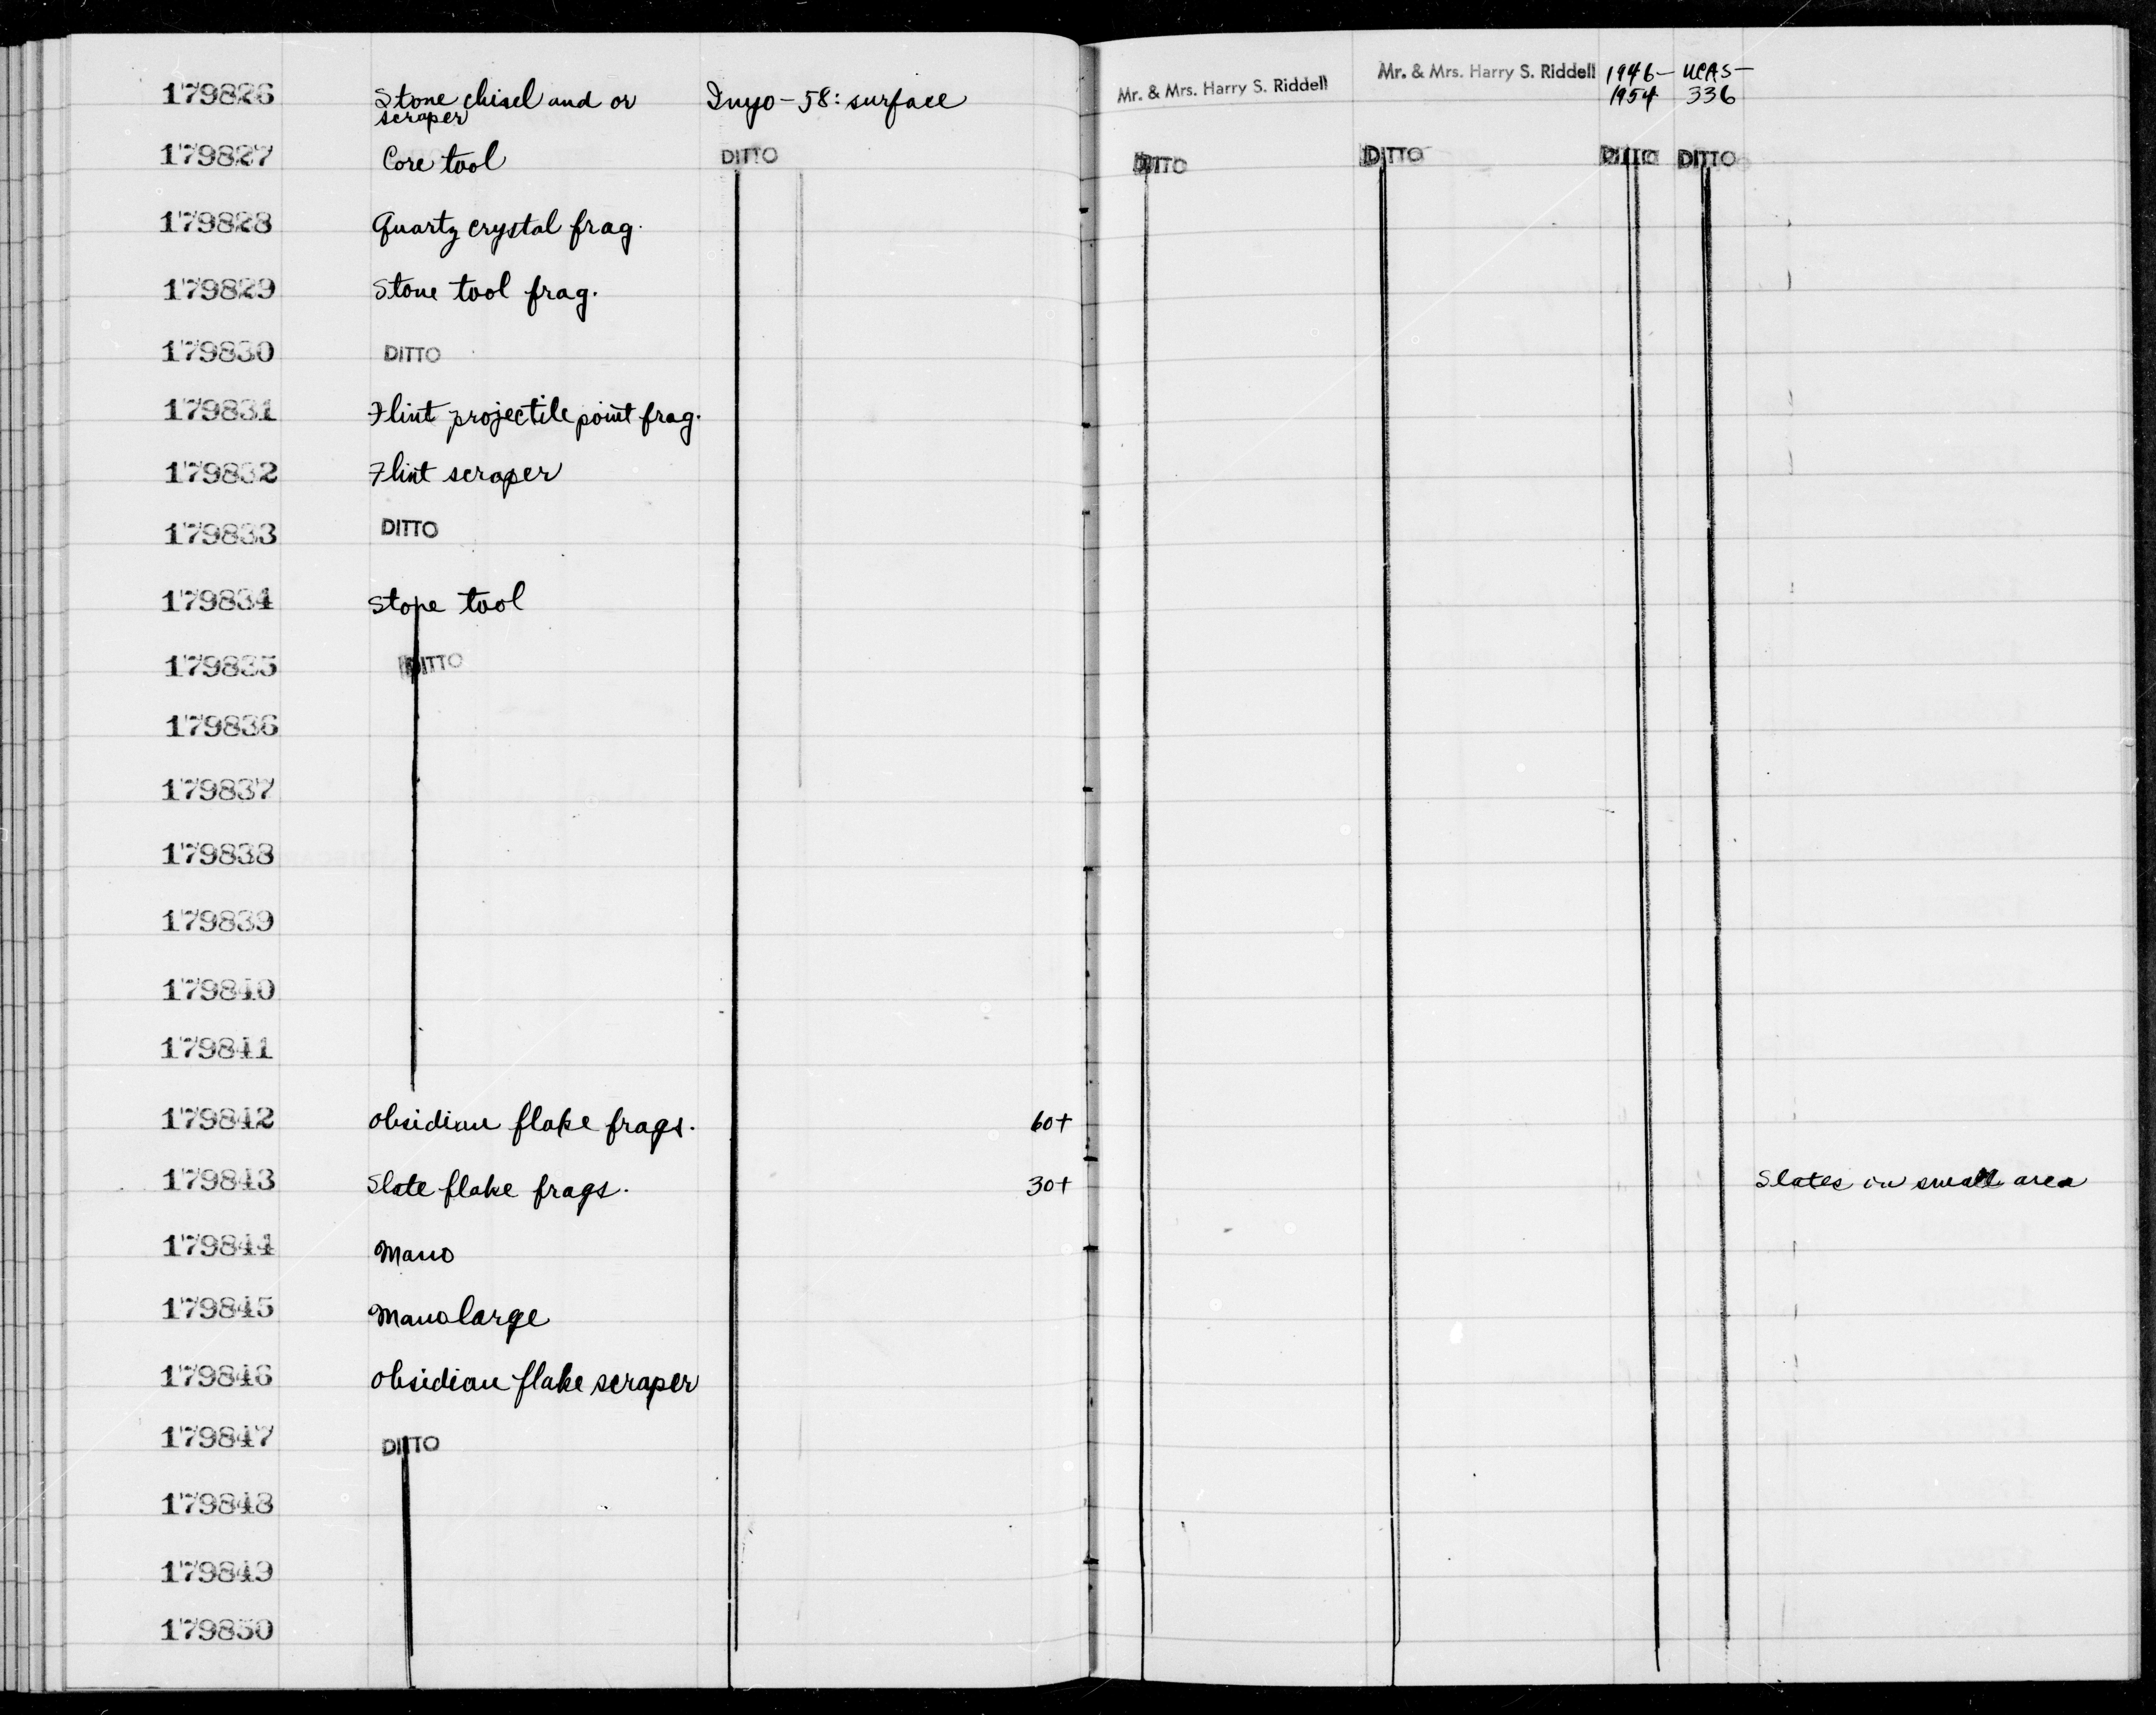 179826 Stone chisel and or Inyo-58: surface Mr. & Mrs. Harry S. Riddell Mr. & Mrs. Harry S. Riddell 1946- UCAS-
scraper 1954 336
179827 Core tool DITTO DITTO DITTO DITTO DITTO
179828 Quartz crystal frag.
179829 Stone tool frag.
179830 DITTO
179831 Flint projectile point frag.
179832 Flint scraper
179833 DITTO
179834 Stone tool
179835 DITTO
179836
179837
179838
179839
179840
179841
179842 Obsidian flake frags. 60+
179843 Slate flake frags. 30+ Slates in small area
179844 Mano
179845 Mano large
179846 Obsidian flake scraper
179847 DITTO
179848
179849
179850